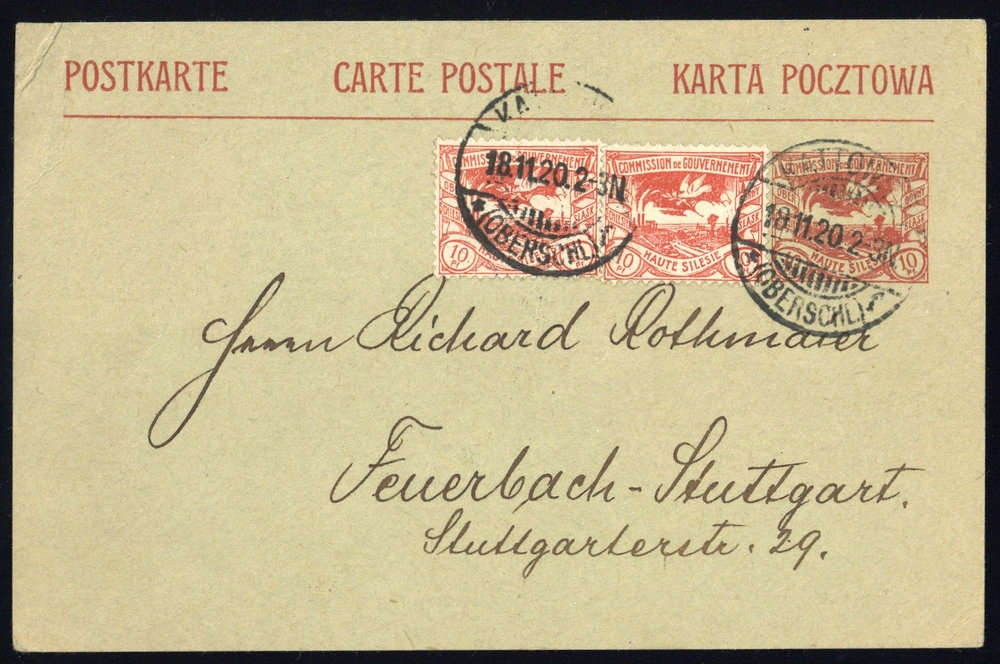 POSTKARTE CARTE POSTALE KARTA POCZTOWA
18.11.20.2-3N
* (OBERSCHL.)
COMMISSION DE GOUVERNEMENT
HAUTE SILESIE
10
COMMISSION DE GOUVERNEMENT
HAUTE SILESIE
KATTO
18.11.20.2-3N
* (OBERSCHL.)
COMMISSION DE GOUVERNEMENT
HAUTE SILESIE
10
Herrn Richard Rothmaier
Feuerbach-Stuttgart.
Stuttgarterstr. 29.